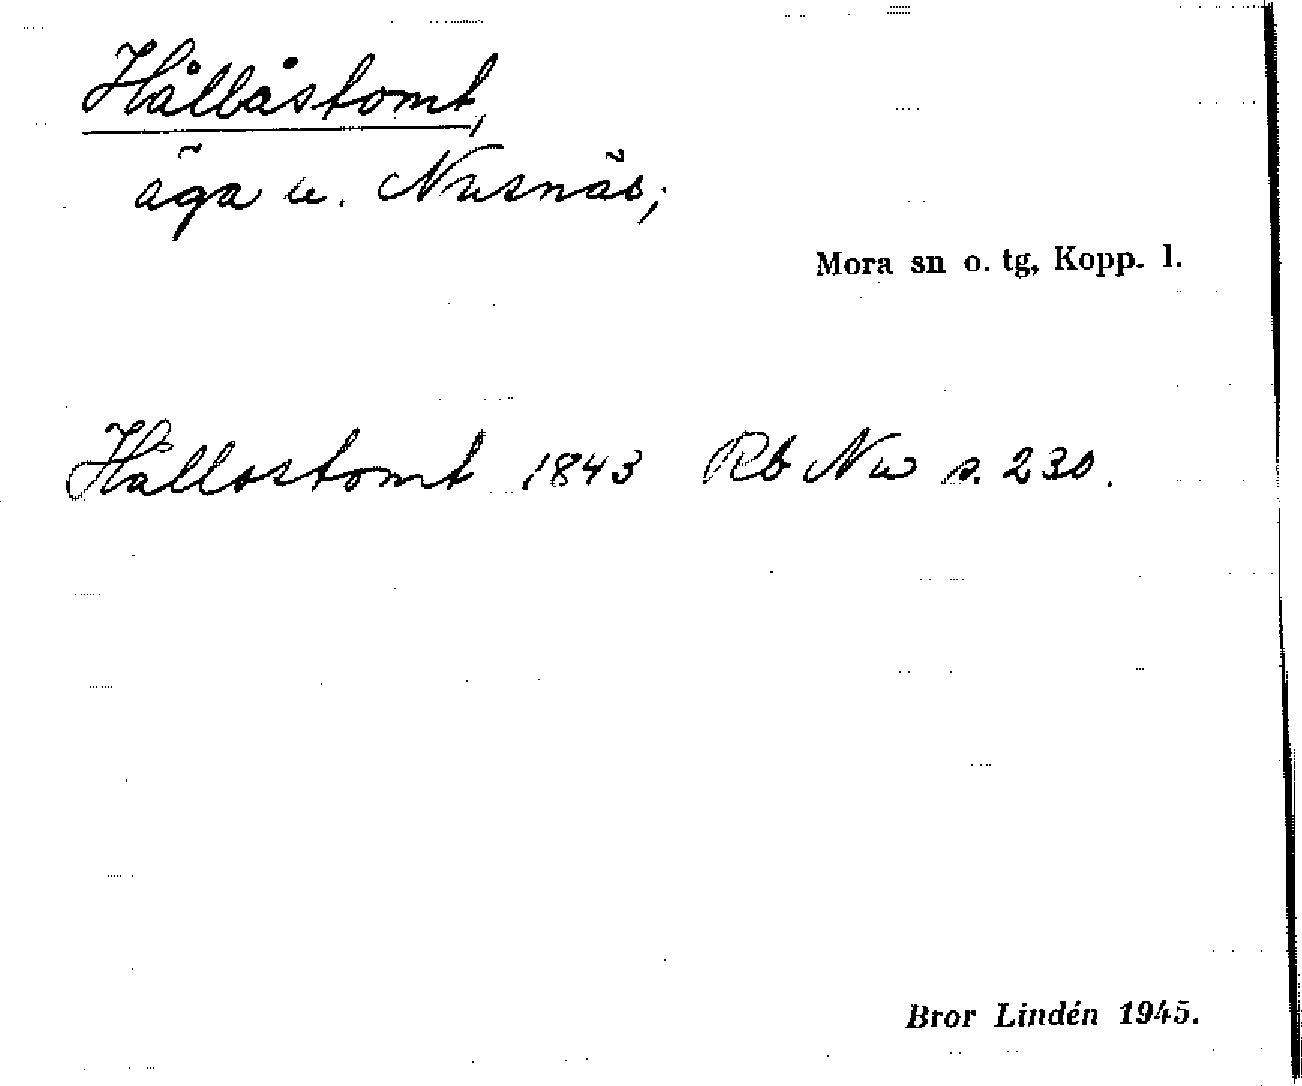 Hållåstomt,
äga u. Nusnäs;
Mora sn o. tg, Kopp. l.
Hållostomt 1843 Rb Nu s. 230.
Bror Lindén 1945.